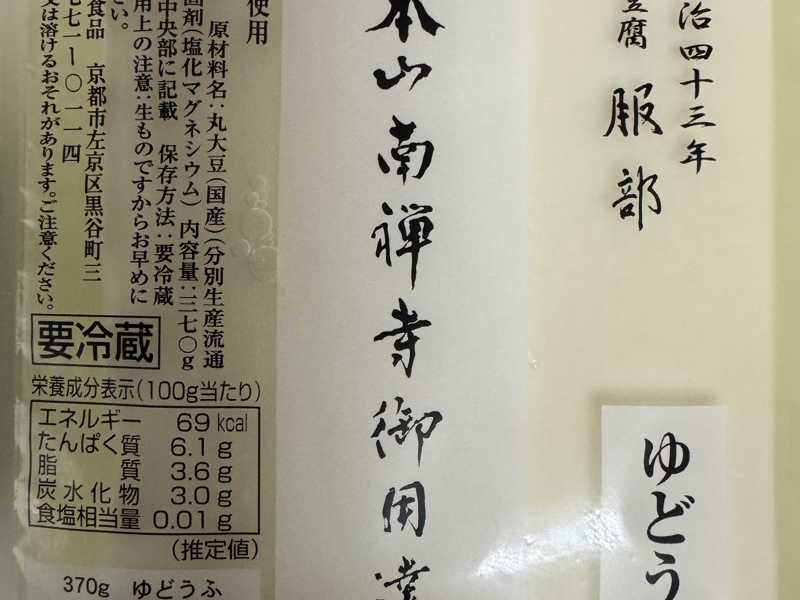 治四十三年
豆腐 服部
ゆどう
本山南禅寺御用達
使用
原材料名:丸大豆(国産)(分別生産流通
固剤(塩化マグネシウム) 内容量:三七〇g
中央部に記載 保存方法:要冷蔵
用上の注意:生ものですからお早めに
さい。
食品 京都市左京区黒谷町三
七七一ー〇一一四
又は溶けるおそれがあります。ご注意ください。
要冷蔵
栄養成分表示(100g当たり)
エネルギー 69 kcal
たんぱく質 6.1 g
脂質 3.6 g
炭水化物 3.0 g
食塩相当量 0.01 g
(推定値)
370g ゆどうふ